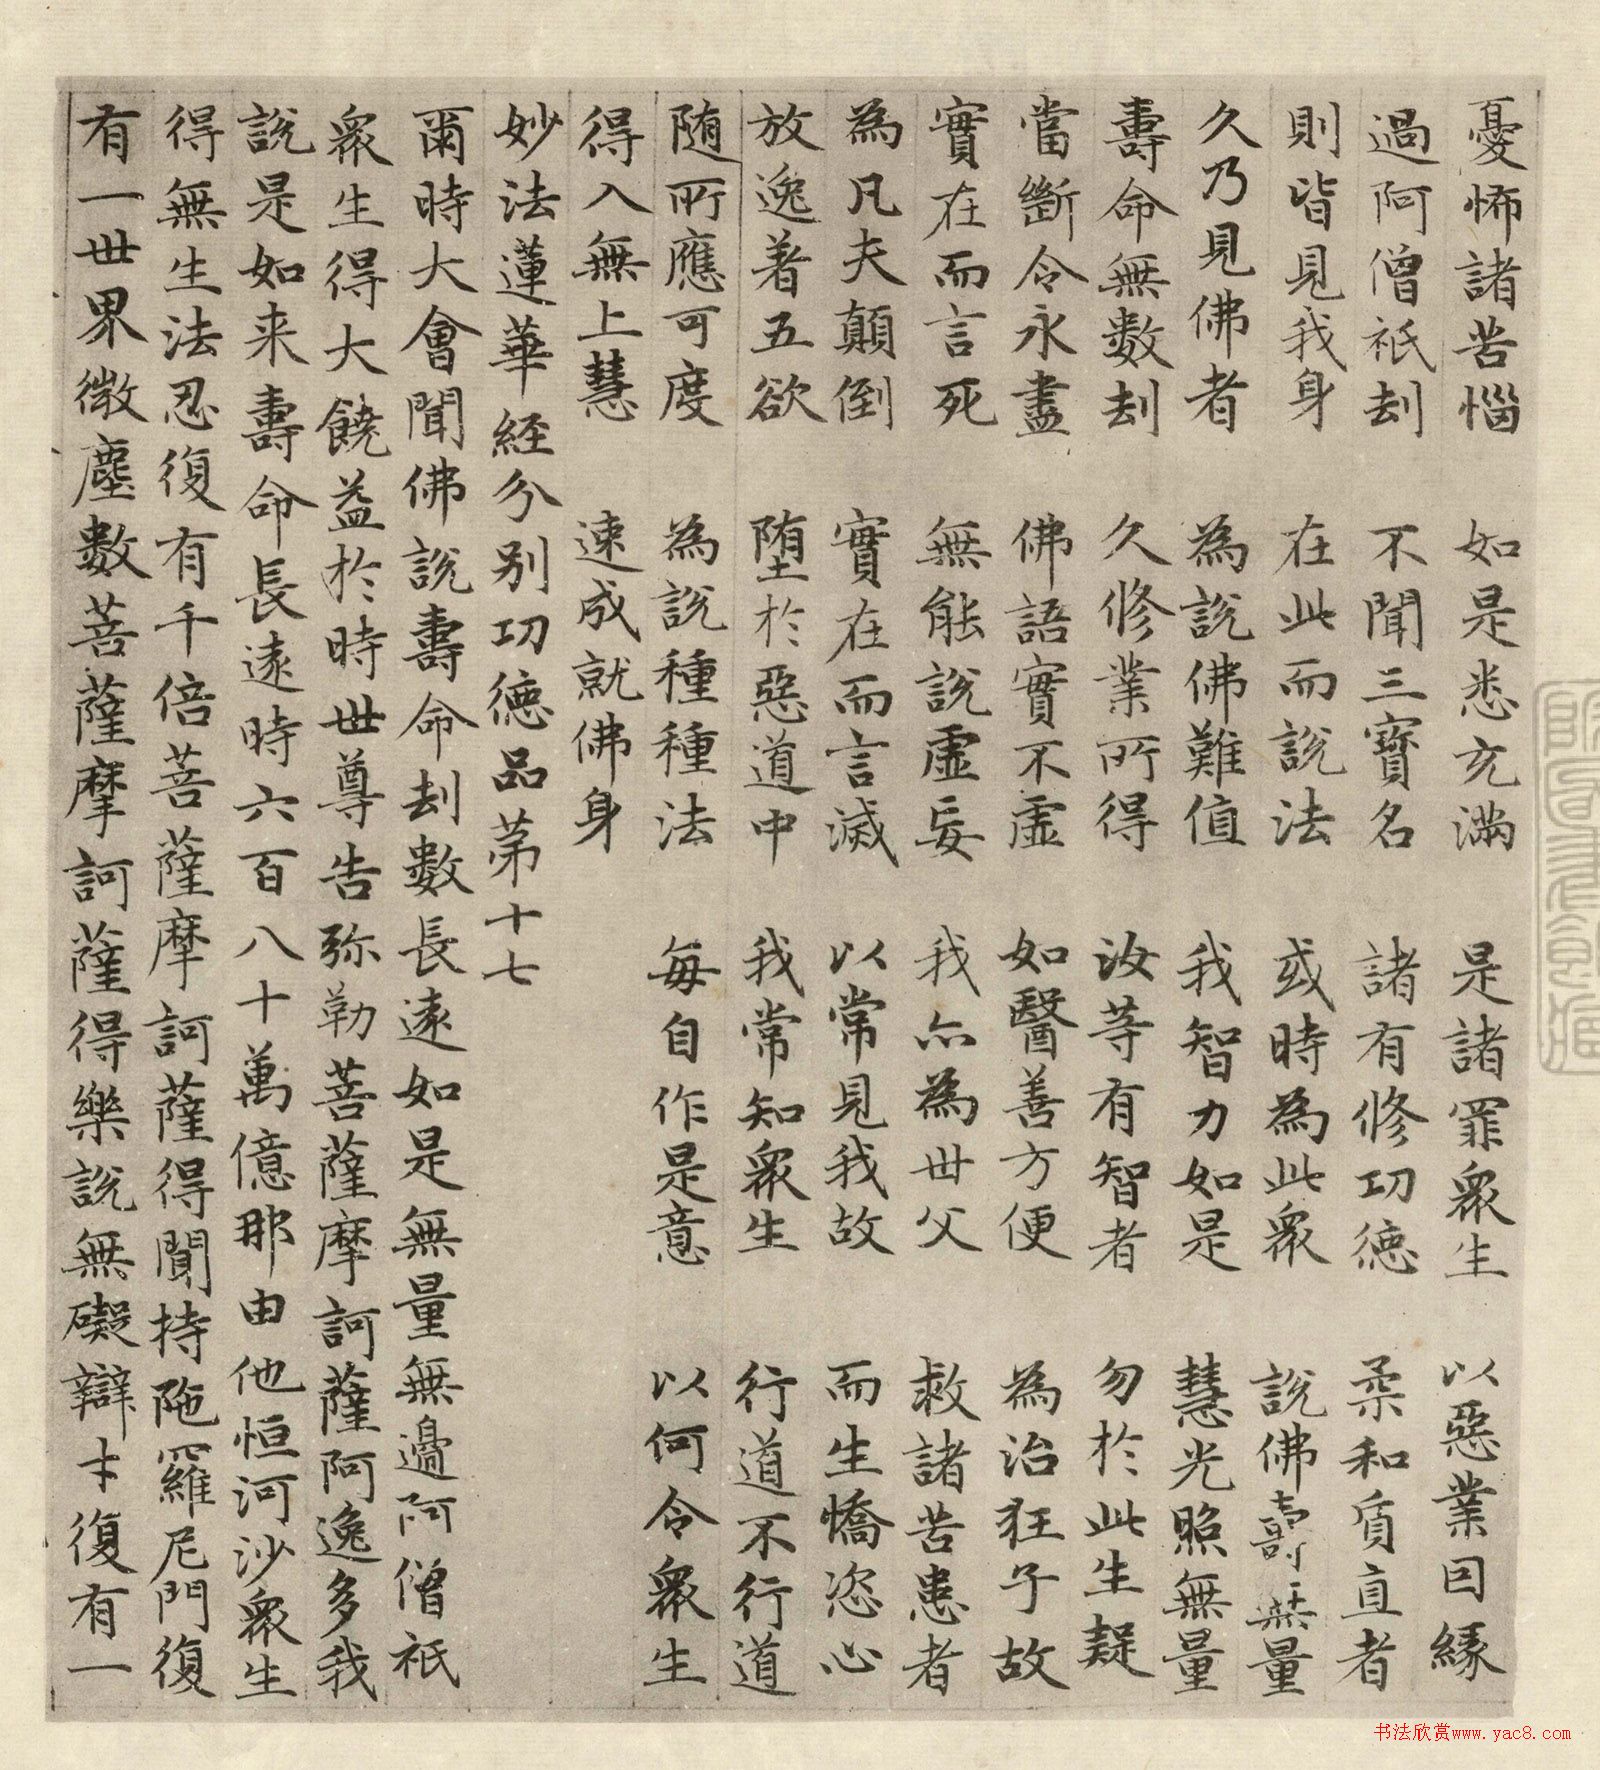 憂怖諸苦惱 如是悉充滿 是諸罪衆生 以惡業因緣
過阿僧祇劫 不聞三寶名 諸有修功德 柔和質直者
則皆見我身 在此而說法 或時為此衆 說佛壽無量
久乃見佛者 為說佛難值 我智力如是 慧光照無量
壽命無數劫 久修業所得 汝等有智者 勿於此生疑
當斷令永盡 佛語實不虛 如醫善方便 為治狂子故
實在而言死 無能說虛妄 我亦為世父 救諸苦患者
為凡夫顛倒 實在而言滅 以常見我故 而生憍恣心
放逸著五欲 墮於惡道中 我常知衆生 行道不行道
隨所應可度 為說種種法 每自作是意 以何令衆生
得入無上慧 速成就佛身
妙法蓮華經分別功德品第十七
爾時大會聞佛說壽命劫數長遠如是無量無邊阿僧祇
衆生得大饒益於時世尊告弥勒菩薩摩訶薩阿逸多我
說是如来壽命長遠時六百八十萬億那由他恒河沙衆生
得無生法忍復有千倍菩薩摩訶薩得聞持陁羅尼門復
有一世界微塵數菩薩摩訶薩得樂說無礙辯才復有一
书法欣赏www.yac8.com